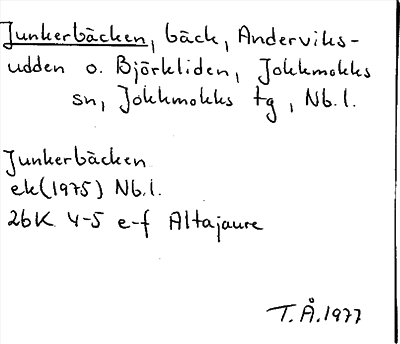 Junkerbäcken, bäck, Anderviks-
udden o. Björkliden, Jokkmokks
sn, Jokkmokks tg, Nb.l.
Junkerbäcken
ek(1975) Nb.l.
26K 4-5 e-f Altajaure
T.Å.1977